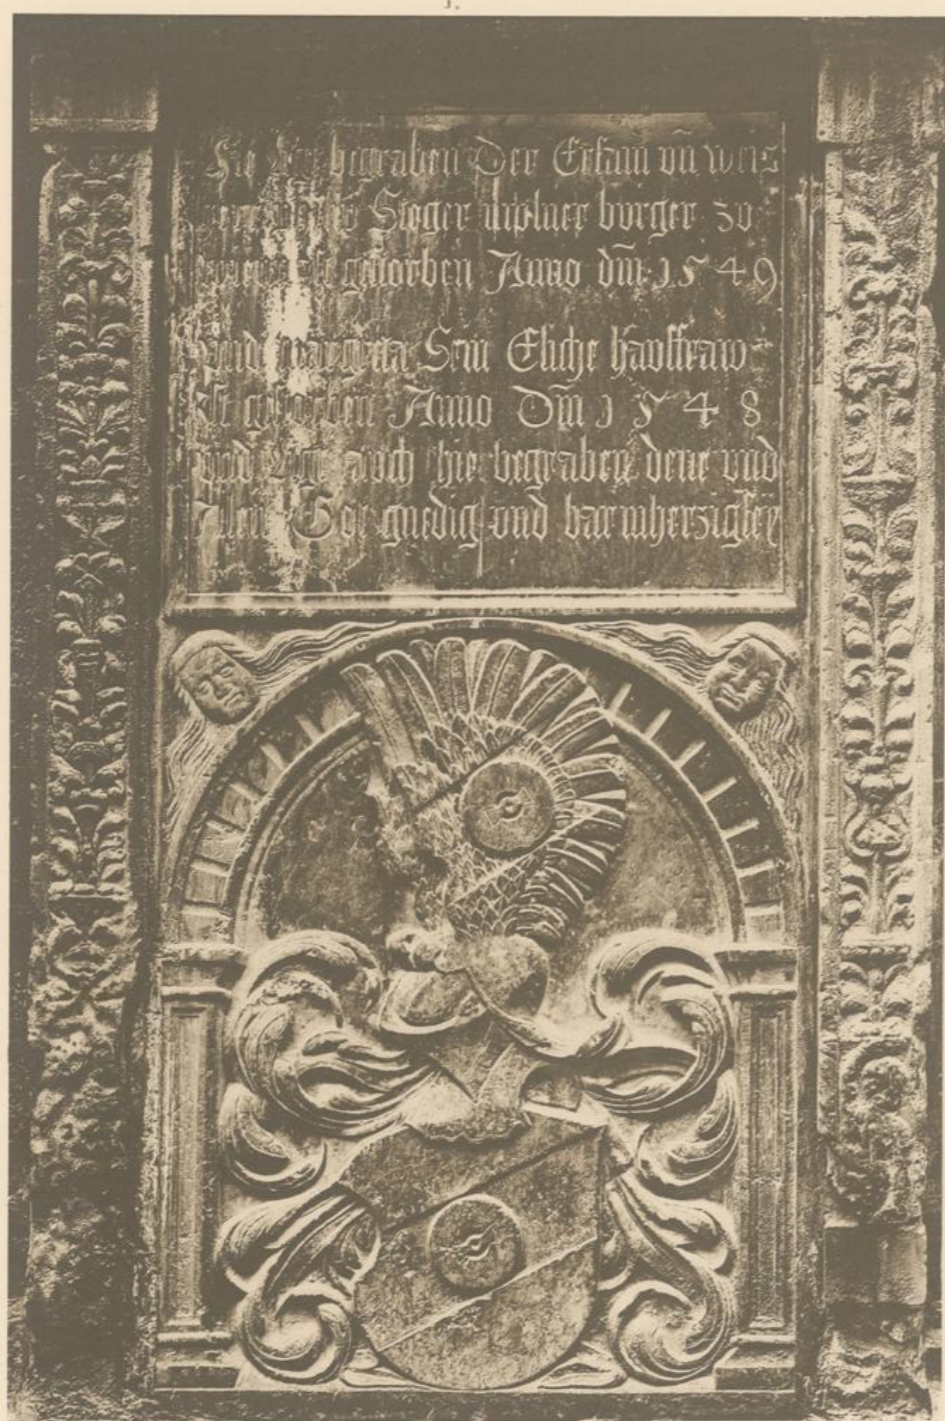 begraben Der Ersam vn̄ weis
Stoger mulner burger zo
gestorben Anno dm̄ 1549
vnd Sein Eliche hausfraw
ist gestorben Anno Dm̄ 1548
vnd auch hie begraben dene vnd
Got gnedig vnd barmherzig sey